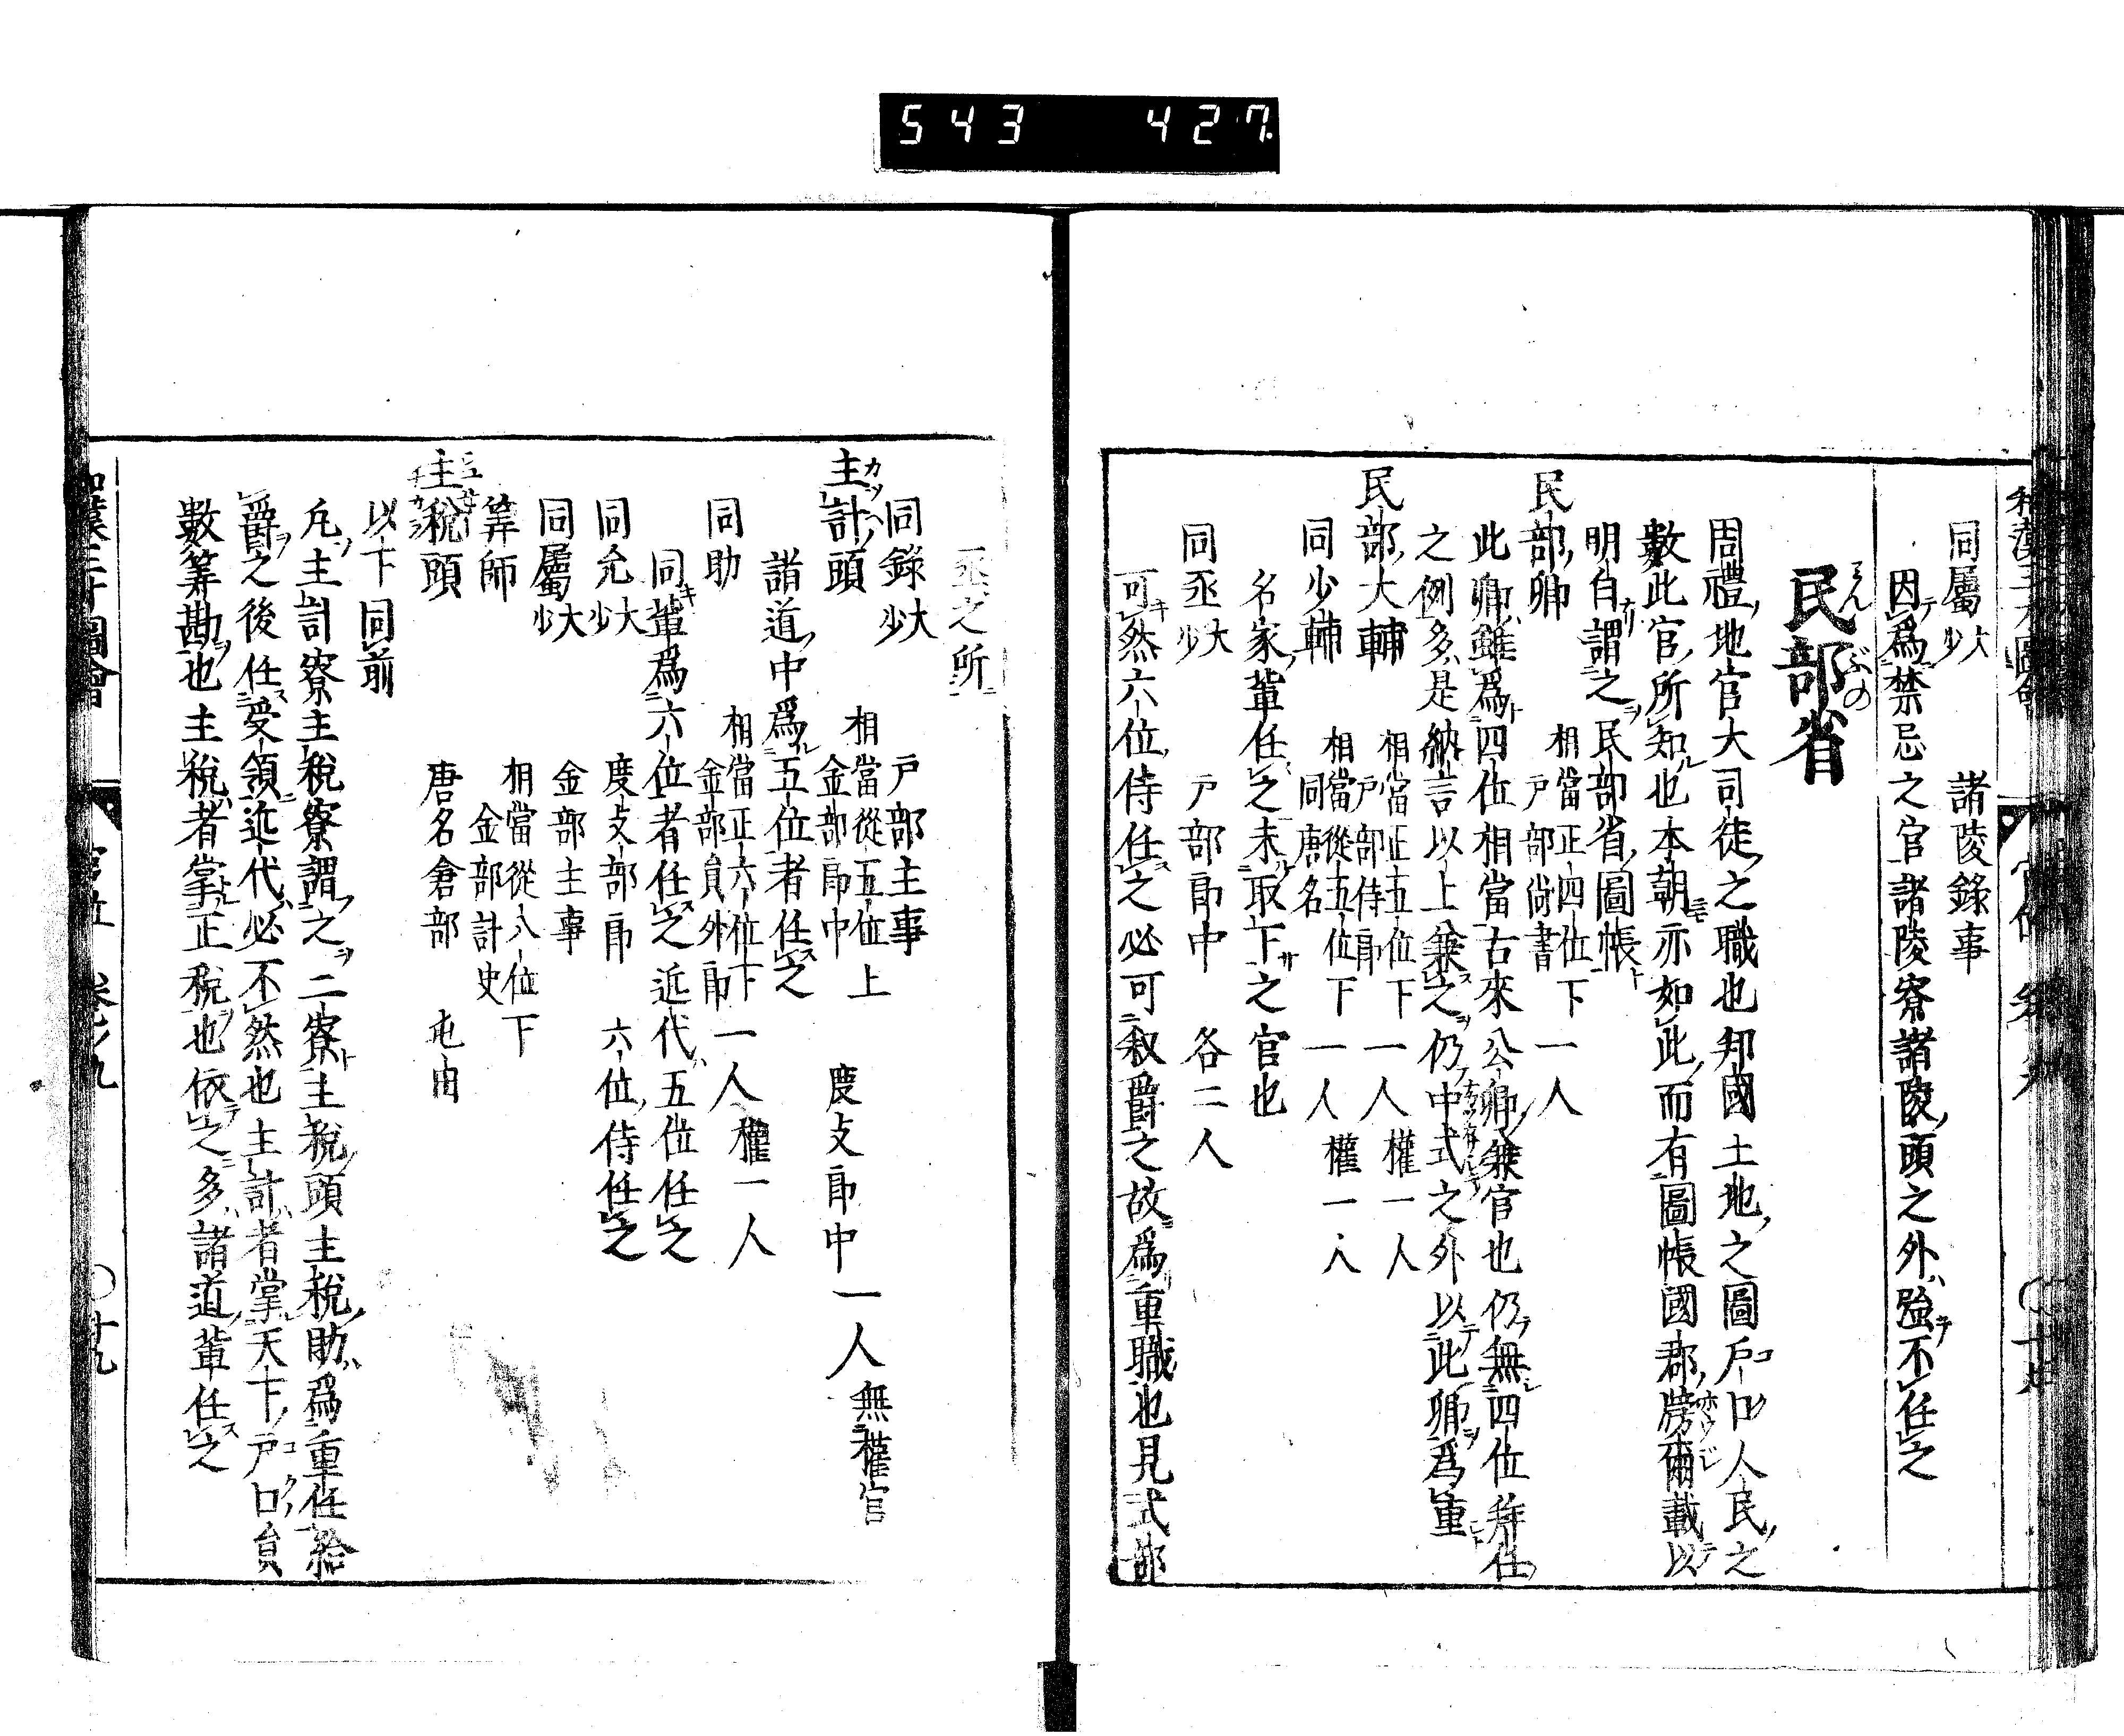 543 427
同屬大少 諸陵錄事
因爲禁忌之官諸陵寮諸陵頭之外強不任之
民部省
みん ぶの
周禮地官大司徒之職也知國土地之圖戶口人民之
數此官所知也本朝亦如此而有圖帳國郡牓爾載以
明白謂之民部省圖帳
民部卿 相當正四位下 戸部尚書 一人
此卿雖爲四位相當古來公卿兼官也仍無四位莾任
之例多是納言以上兼之仍中式之外以此卿爲重
民部大輔 相當正五位下 戸部侍郎 一人 權一人
同少輔 相當從五位下 同唐名 一人 權一人
名家輩任之未取下之官也
同丞大少 戸部郎中 各二人
可然六位侍任之必可叙爵之故爲重職也見式部
丞之所
同錄大少 戸部主事
主計頭 相當從五位上 金部郎中 度支郎中 一人 無權官
諸道中爲五位者任之
同助 相當正六位下 金部員外郎 一人 權一人
同輩爲六位者任之近代五位任之
同允大少 度支部郎 六位侍任之
同屬大少 金部主事
筭師 相當從八位下 金部計史
主稅頭 唐名倉部 屯田
以下同前
凡主計寮主稅寮謂之二寮主稅頭主稅助爲重任給
爵之後任受領近代必不然也主計者掌天下戸口員
數筭勘也主稅者掌正稅也依之多諸道輩任之
和漢三才圖會 官位 卷ノ九 〇十九